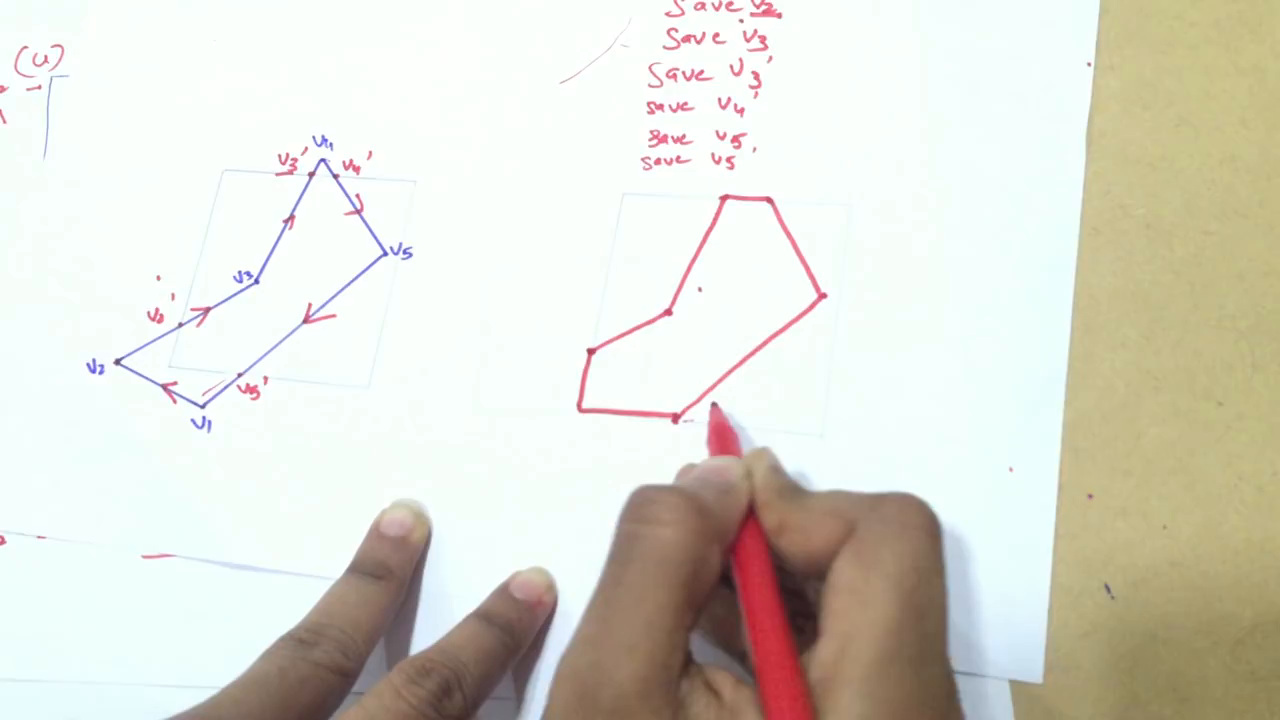 save v2
save v3
save v3'
save v4'
save v5
save v5'
(u)
v4
v3'
v4'
v3
v5
v2'
v2
v5'
v1